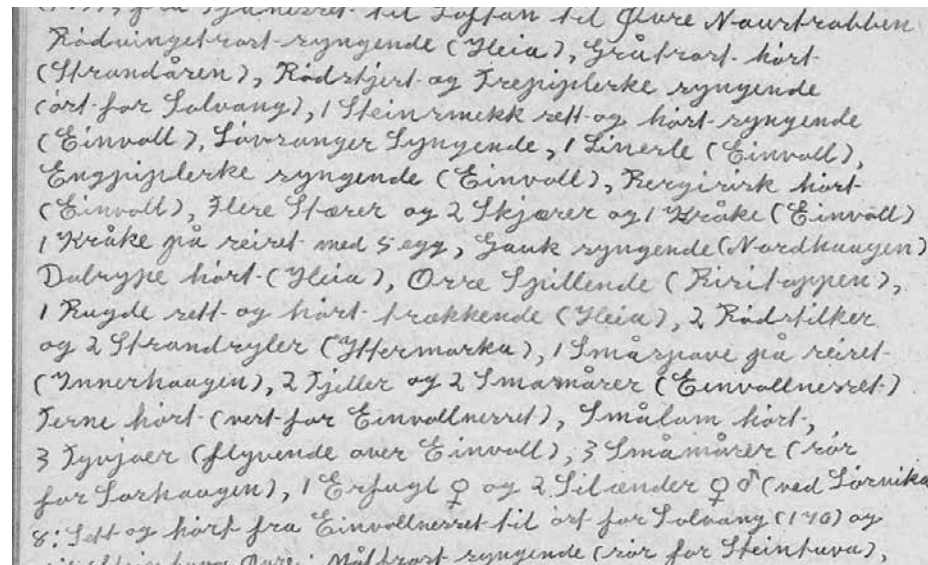 fra Tjønesset til Loftan til Øvre Naustrabben
Rødvingetrost syngende (Hleia), Gråtrost hørt
(Strandåren), Rødstjert og Trepiplerke syngende
(øst for Solvang), 1 Steinsmekk sett og hørt syngende
(Einvoll), Løvsanger Syngende, 1 Linerle (Einvoll),
Engpiplerke syngende (Einvoll), Bergirisk hørt
(Einvoll), Flere Stærer og 2 Skjærer og 1 Kråke (Einvoll)
1 Kråke på reiret med 5 egg, Gauk syngende (Nordhaugen)
Dalrype hørt (Hleia), Orre Spillende (Kiritoppen),
1 Rugde sett og hørt trækkende (Hleia), 2 Rødstilker
og 2 Strandsyler (Yttermarka), 1 Småspove på reiret
(Innerhaugen), 2 Tjeller og 2 Smamårer (Einvollnesset)
Terne hørt (vest for Einvollnesset), Smålom hørt,
3 Tyvjoer (flyvende over Einvoll), 3 Småmårer (sør
for Sørhaugen), 1 Erfugl ♀ og 2 Silænder ♀ ♂ (ved Sørvika
8: Sett og hørt fra Einvollnesset til øst for Solvang (170) og
Øvre: Måltrost syngende (sør for Steintuva),